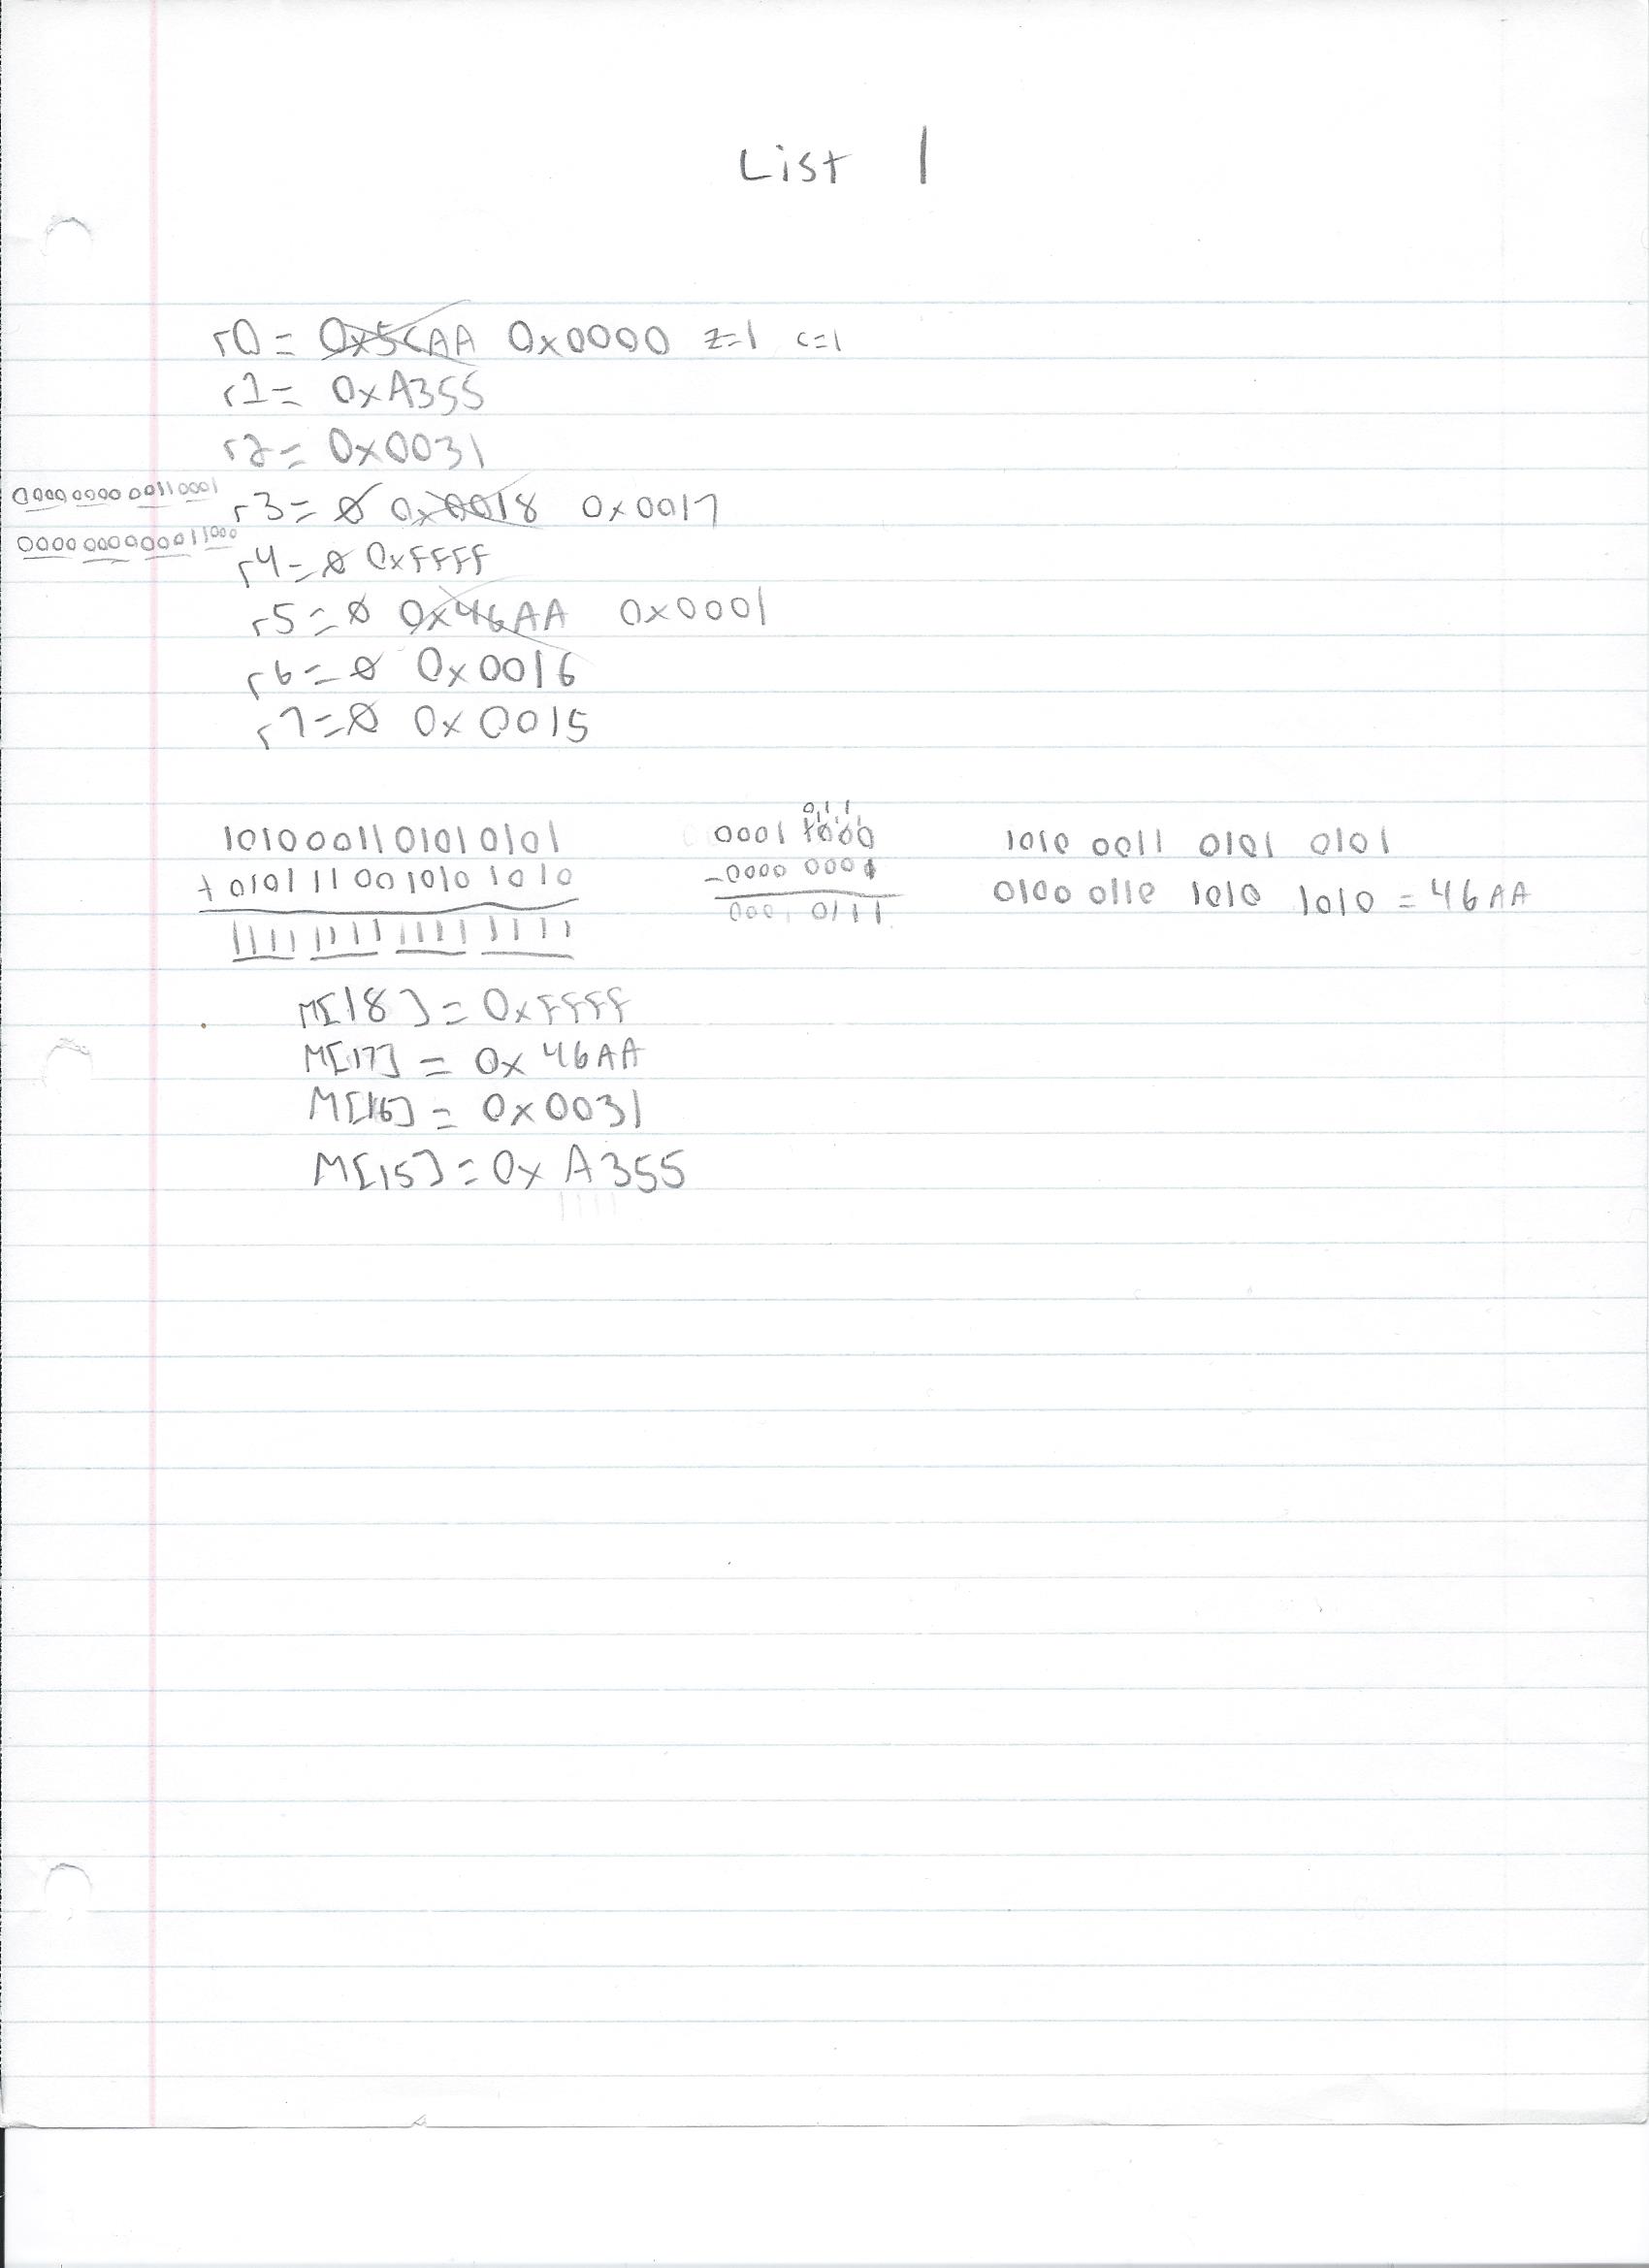 List 1
r0 = 0x5CAA 0x0000 z=1 c=1
r1= 0xA355
r2= 0x0031
0000 0000 0011 0001
r3= 0 0x0018 0x0017
0000 0000 0001 1000
r4=0 0xFFFF
r5=0 0x46AA 0x0001
r6=0 0x0016
r7=0 0x0015
0 1 1
1010001101010101 0001 1000 1010 0011 0101 0101
+ 0101110010101010 -0000 0001 0100 0110 1010 1010 = 46AA
1111 1111 1111 1111 0001 0111
M[18] = 0xFFFF
M[17] = 0x46AA
M[16] = 0x0031
M[15] = 0xA355